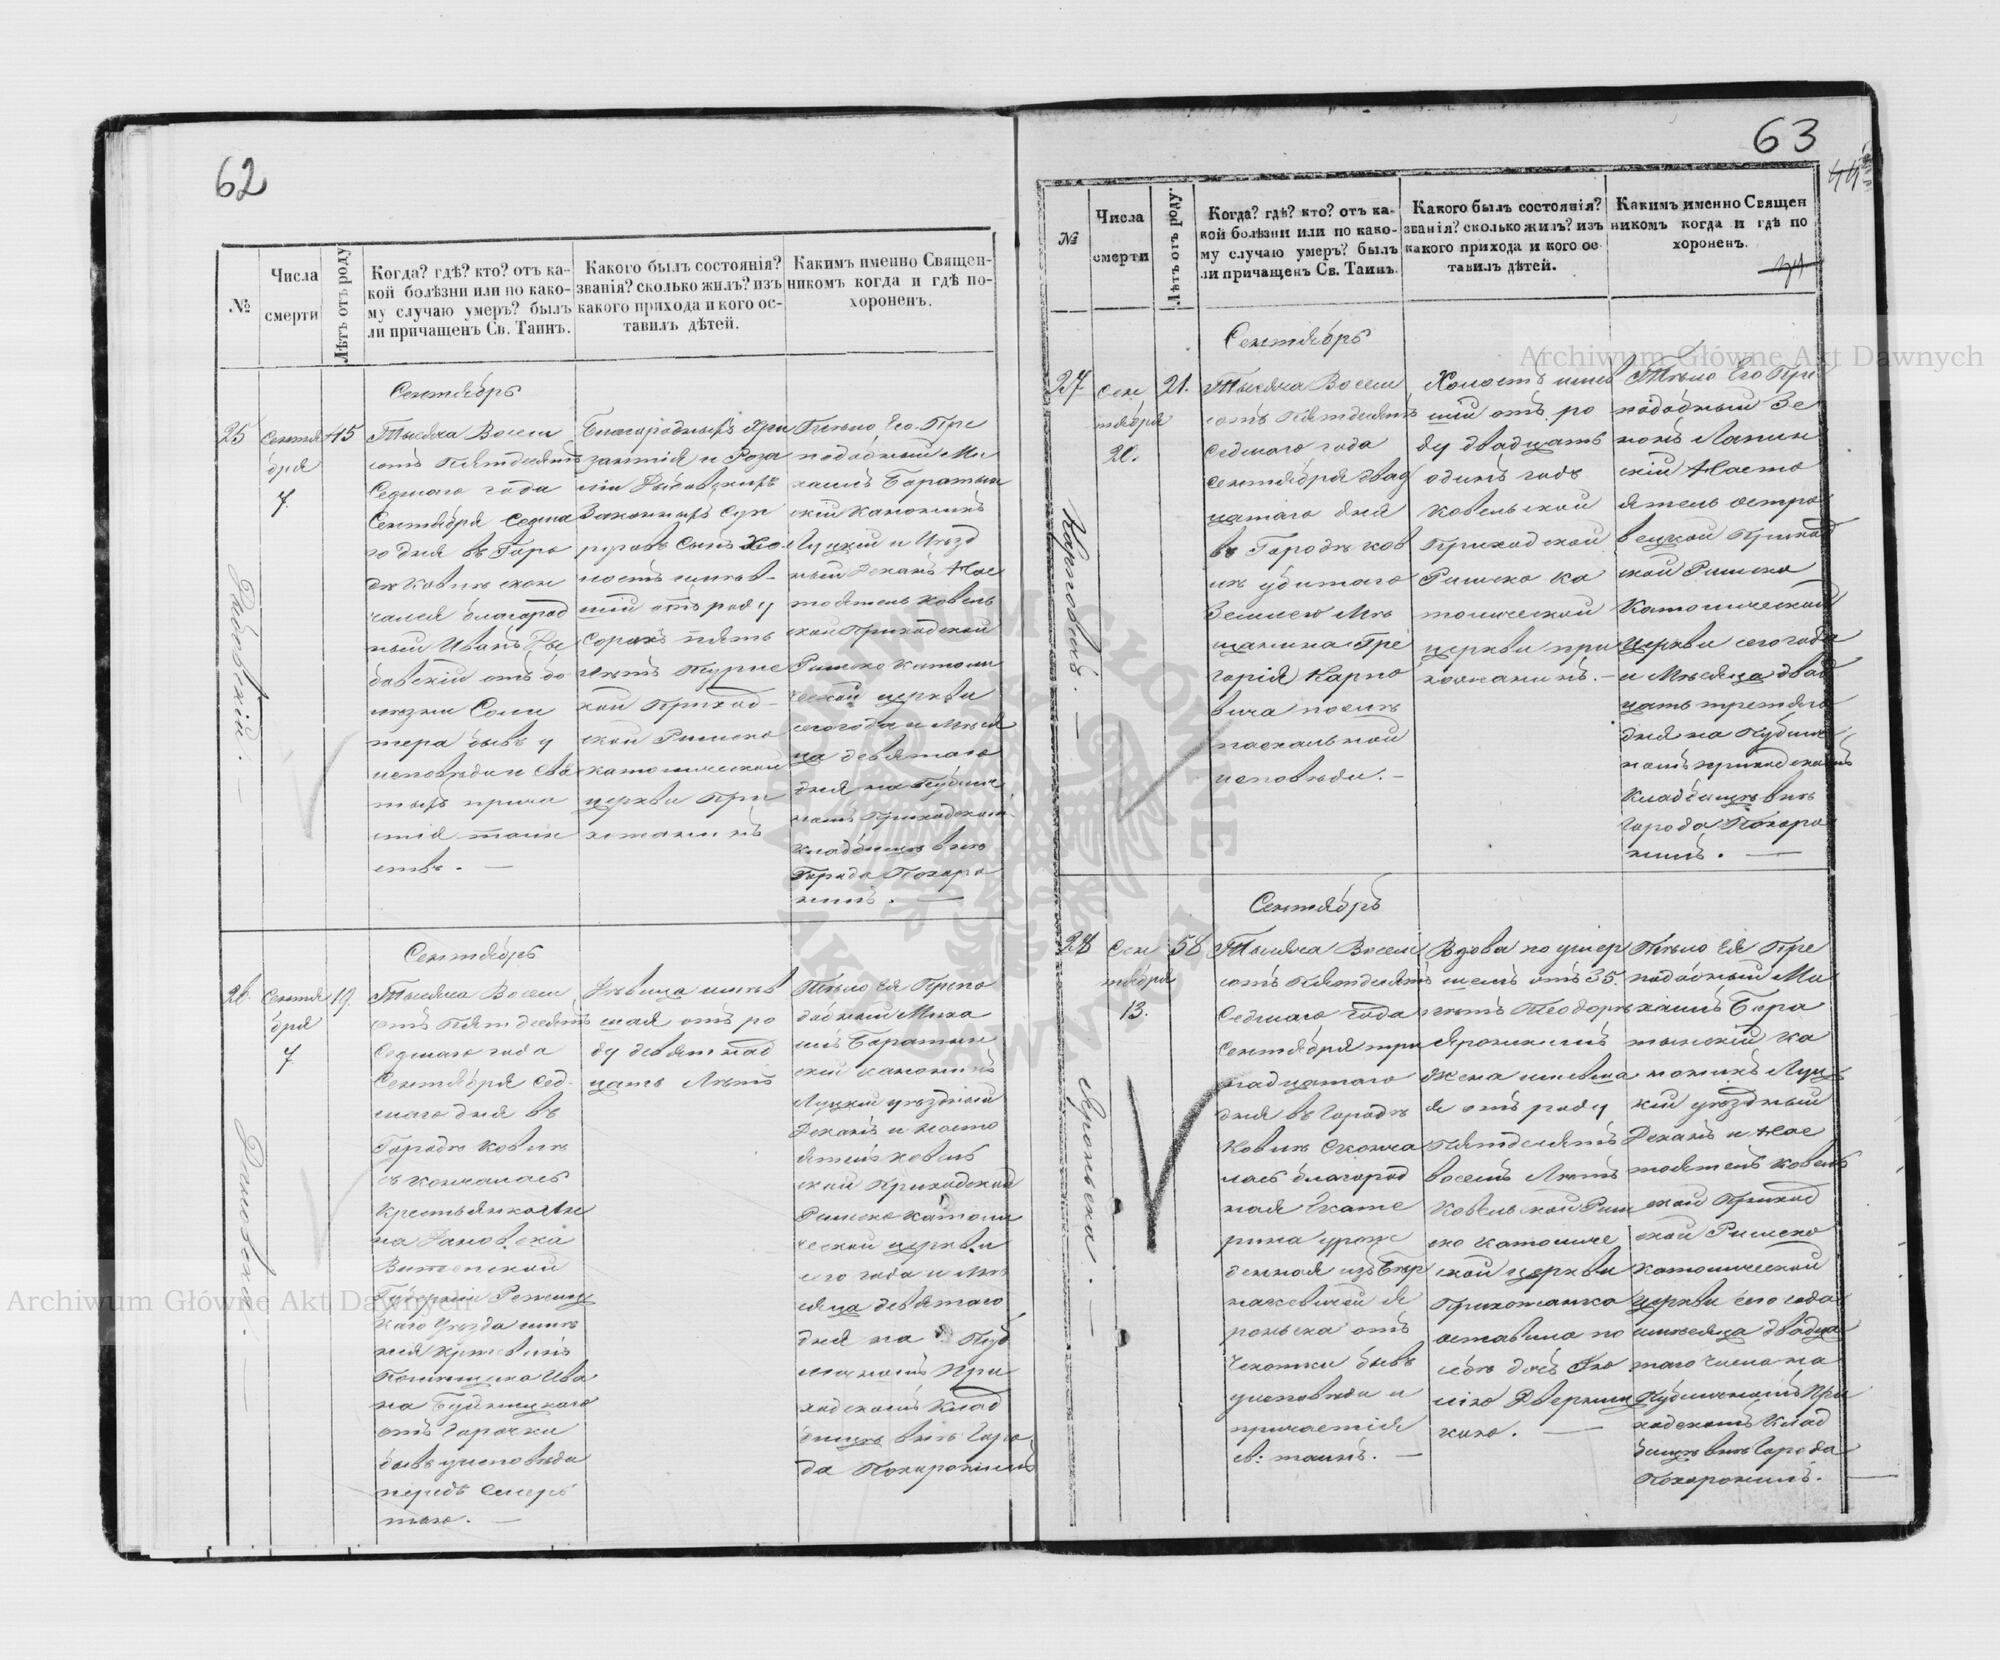 62
№
Числа
смерти
Лѣтъ отъ роду
Когда? гдѣ? кто? отъ ка-
кой болѣзни или по како-
му случаю умеръ? былъ
ли причащенъ Св. Таинъ.
Какого былъ состоянія?
званія? сколько жилъ? изъ
какого прихода и кого ос-
тавилъ дѣтей.
Какимъ именно Священ-
никомъ когда и гдѣ по-
хороненъ.
25
Сентя
бря
7.
45
Сентябрь
Тысяча Восем
сотъ Пятдесятъ
Седмаго года
Сентября Седма
го дня въ Горо
дѣ Ковлѣ скон
чался благород
ный Иванъ
отъ бо
лѣзни
бывъ у
исповѣди и Свя
тыхъ прича
стія таин
ствъ. —
Благородныхъ
и Роза
ліи
Законныхъ Суп
руговъ Сынъ Хо
лостъ имѣв-
шій отъ роду
Сорокъ пять
лѣтъ
кой Приход-
ской Римско
католической
церкви При
хожанинъ
Тѣло Его Пре
подобный Ми
хаилъ Баратын
скій Каноникъ
Луцкій и Уѣзд
ный Деканъ Нас
тоятель Ковель
ской Приходской
Римско Католи
ческой церкви
сего года и Мѣся
ца девятаго
дня на Публич
номъ Приходском
кладбищѣ внѣ
Города Похоро
нилъ. —
26.
Сентя
бря
7
19.
Сентябрь
Тысяча Восем
сотъ Пятдесятъ
Седмаго года
Сентября Сед-
маго дня въ
Городѣ Ковлѣ
скончалась
Крестьянка Ан
на
Витепской
Губерніи Режиц
каго Уѣзда имѣ
нія
Помѣщика Ива
на
отъ Горячки
бывъ у исповѣди
передъ Смер
тію. —
Дѣвица имѣв
шая отъ ро
ду девятнад
цать Лѣтъ
Тѣло Ея Препо
добный Миха
илъ Баратын
скій Каноникъ
Луцкій уѣздный
Деканъ и Насто
ятель Ковель
ской Приходской
Римско Католи
ческой церкви
сего года и Мѣ
сяца девятаго
дня на Пуб
личномъ При
ходскомъ Клад
бищѣ внѣ Горо
да Похоронилъ
63
№
Числа
смерти
Лѣтъ отъ роду.
Когда? гдѣ? кто? отъ ка-
кой болѣзни или по како-
му случаю умеръ? былъ
ли причащенъ Св. Таинъ.
Какого былъ состоянія?
званія? сколько жилъ? изъ
какого прихода и кого ос-
тавилъ дѣтей.
Какимъ именно Священ
никомъ когда и гдѣ по
хороненъ.
27
Сен
тября
20.
21.
Карповичъ. —
Сентябрь
Тысяча Восем
сотъ Пятдесятъ
Седмаго года
Сентября двад
цатаго дня
въ Городѣ Ков
лѣ убитаго
Землею Мѣ
щанина Гре
горія Карпо
вича послѣ
пасхальной
исповѣди. —
Холостъ имѣв
шій отъ ро
ду двадцать
одинъ годъ
Ковельской
Приходской
Римско Ка
толической
церкви при
хожанинъ. —
Тѣло Его Пре
подобный Зе
нонъ Лапин
скій Насто
ятель
Приход
ской Римско
Католической
Церкви сего года
и Мѣсяца двад
цать третяго
дня на Публич
номъ приходскомъ
Кладбищѣ внѣ
Города Похоро
нилъ. —
28
Сен
тября
13.
58
Яроньска. —
Сентябрь
Тысяча Восем
сотъ Пятдесятъ
Седмаго года
Сентября три
надцатаго
дня въ Городѣ
Ковлѣ Сконча
лась благород
ная Екате
рина урож
денная изъ
Я
роньска отъ
Чехотки бывъ
у исповѣди и
причастія
св: таинъ. —
Вдова по умер
шемъ отъ 35.
лѣтъ Теодорѣ
Яронскимъ
Жена имевша
я отъ роду
Пятдесятъ
восемь Лѣтъ
Ковельской Рим
ско католиче
ской церкви
Прихожанка
оставила по
себѣ дочь
Тѣло Ея Пре
подобный Ми
хаилъ Бара
тынскій Ка
ноникъ Луц
кій уѣздный
Деканъ и Нас
тоятель Ковель
ской Приход
ской Римско
католической
Церкви сего года
и мѣсяца двадца
таго числа на
Публичномъ При
ходскомъ Клад
бищѣ внѣ Города
Похоронилъ. —
Archiwum Główne Akt Dawnych
Archiwum Główne Akt Dawnych